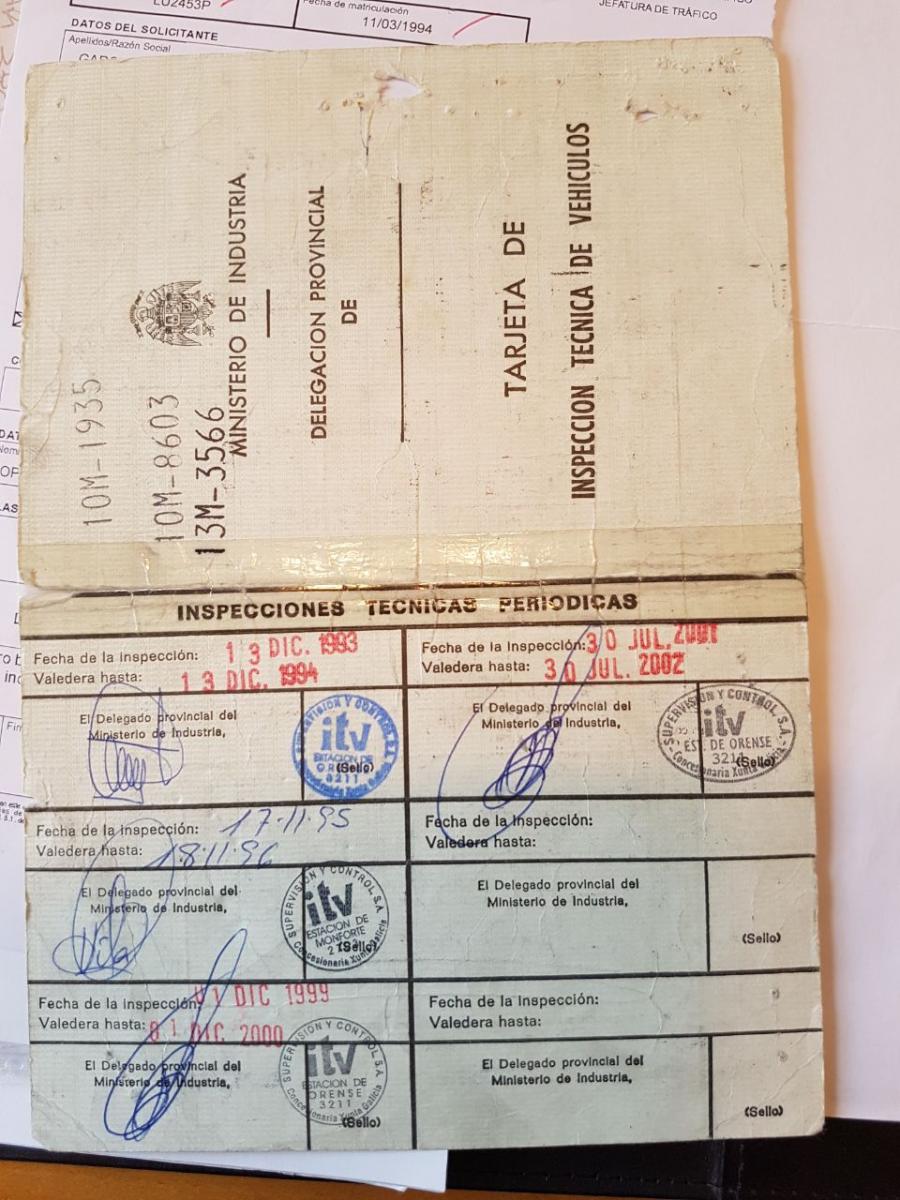 LU2453P
Fecha de matriculación
11/03/1994
JEFATURA DE TRÁFICO
DATOS DEL SOLICITANTE
Apellidos/Razón Social
10M-1935
10M-8603
13M-3566
MINISTERIO DE INDUSTRIA
DELEGACION PROVINCIAL
DE
TARJETA DE
INSPECCION TECNICA DE VEHICULOS
INSPECCIONES TECNICAS PERIODICAS
Fecha de la inspección: 13 DIC. 1993
Valedera hasta: 13 DIC. 1994
El Delegado provincial del
Ministerio de Industria,
itv
ESTACION DE
3211
(Sello)
Fecha de la inspección: 17-11-95
Valedera hasta: 18-11-96
El Delegado provincial del
Ministerio de Industria,
SUPERVISION Y CONTROL S.A.
itv
ESTACION DE
MONFORTE
Concesionaria Xunta Galicia
(Sello)
Fecha de la inspección: 01 DIC 1999
Valedera hasta: 01 DIC 2000
El Delegado provincial del
Ministerio de Industria,
SUPERVISION Y CONTROL S.A.
itv
ESTACION DE
ORENSE
3211
Concesionaria Xunta Galicia
(Sello)
Fecha de la inspección: 30 JUL. 2001
Valedera hasta: 30 JUL. 2002
El Delegado provincial del
Ministerio de Industria,
SUPERVISION Y CONTROL, S.A.
itv
EST. DE ORENSE
3211
Concesionaria Xunta Galicia
(Sello)
Fecha de la inspección:
Valedera hasta:
El Delegado provincial del
Ministerio de Industria,
(Sello)
Fecha de la inspección:
Valedera hasta:
El Delegado provincial del
Ministerio de Industria,
(Sello)